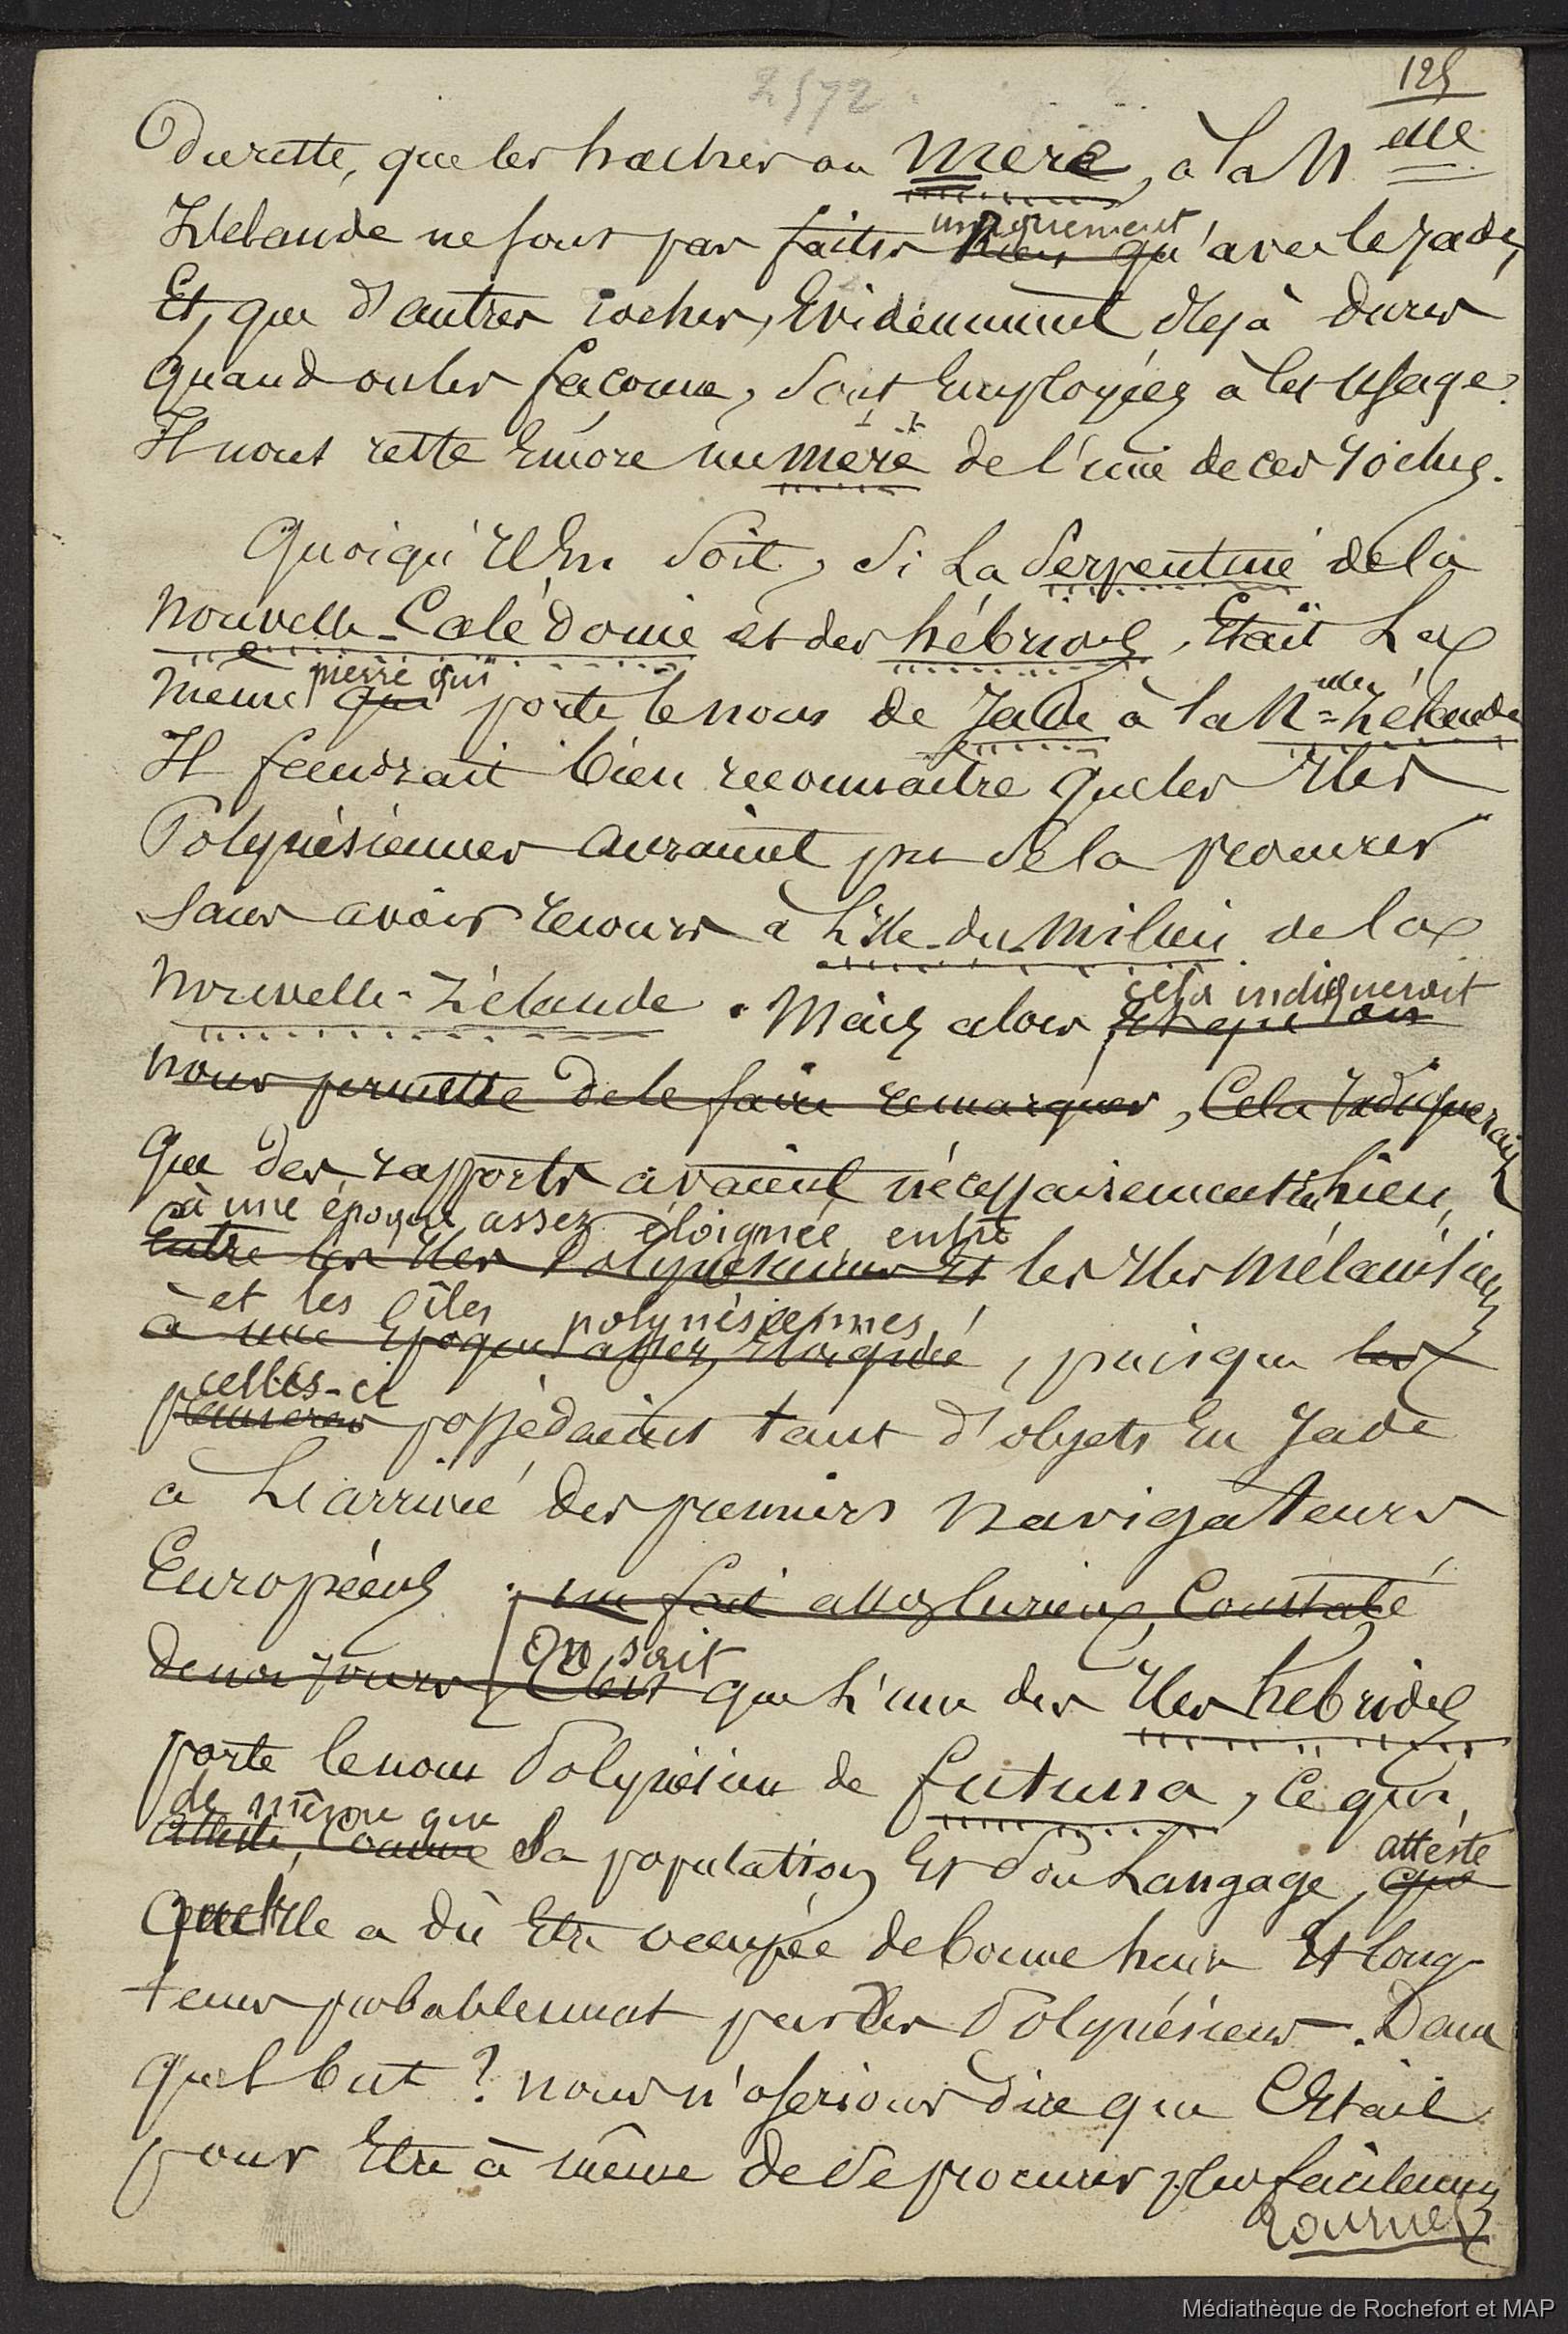 2572
125
Du reste, que les haches ou Mere, à la Nelle
Zélande ne sont pas faites uniquement rien qu'avec le jade,
Et, que d'autres roches, Evidemment déjà dures
quand on les façonne, sont Employées à cet usage.
Il nous reste Encore un mere de l'une de ces roches.
Quoiqu'il En Soit, Si La Serpentine de la
Nouvelle-Calédonie et des hébrides, Etait La
pierre qui
même qui porte le nom de Jade à la Nlle=Zélande
Il faudrait bien reconnaitre que les Iles
Polynésiennes auraient pu se la procurer
sans avoir recours à L'Ile-du-Milieu de la
Nouvelle-Zélande. Mais alors
cela indiquerait
nous permette de le faire remarquer, Cela Indiquerait
que des rapports avaient nécessairement eu lieu,
à une époque assez éloignée entre
Entre les Iles Polynésiennes Et les Iles Mélanésiennes
et les îles polynésiennes,
à une Epoque assez Eloignée, puisque les
celles-ci
premieres possédaient tant d'objets En Jade
à L'arrivée des premiers Navigateurs
Européens. un fait assez curieux, Constaté
On sait
de nos jours, C'est que L'une des Iles hébrides
porte le nom Polynésien de futuna, Ce qui,
de même que
atteste, Comme Sa population Et Son Langage, atteste que
qu'elle a dû Etre occupée de bonne heure Et long-
tems probablement par des Polynésiens. Dans
quel but? nous n'oserions dire que C'Etait
pour Etre à même de Se procurer plus facilement
tournez
Médiathèque de Rochefort et MAP